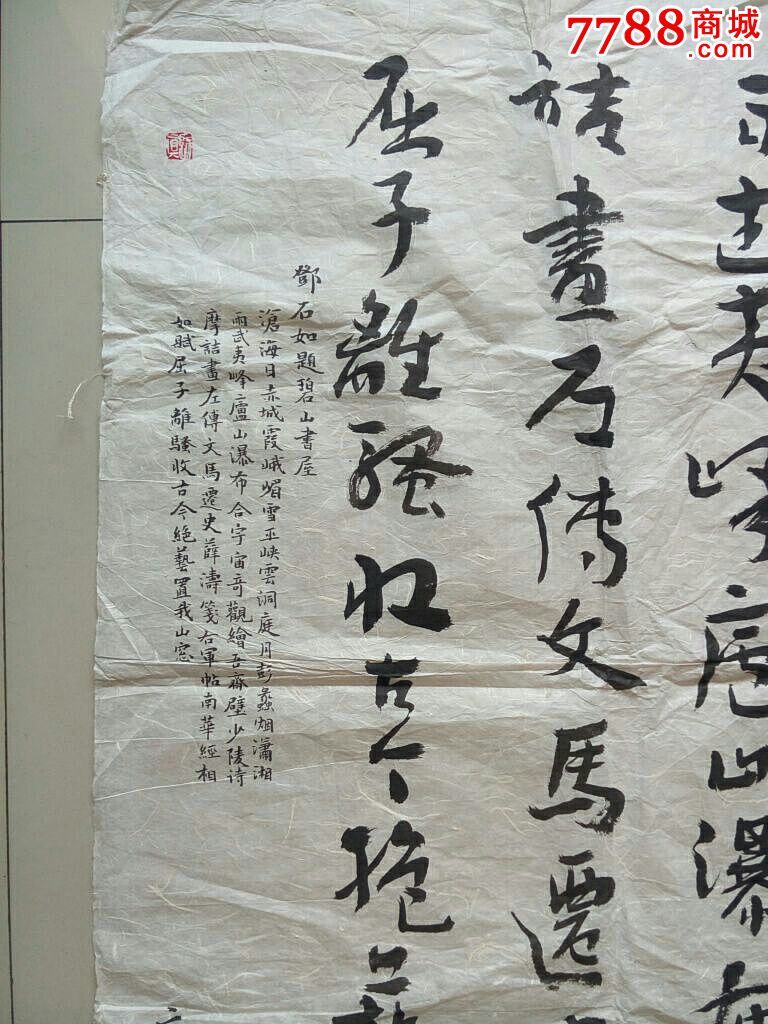 7788商城
.com
武夷峰廬山瀑
詰畫左傳文馬遷
屈子離騷收古今絕藝
鄧石如題碧山書屋
滄海日赤城霞峨嵋雪巫峽雲洞庭月彭蠡烟瀟湘
雨武夷峰廬山瀑布合宇宙奇觀繪吾齋壁少陵诗
摩詰畫左傳文馬遷史薛濤箋右軍帖南華經相
如賦屈子離騷收古今絶藝置我山窓